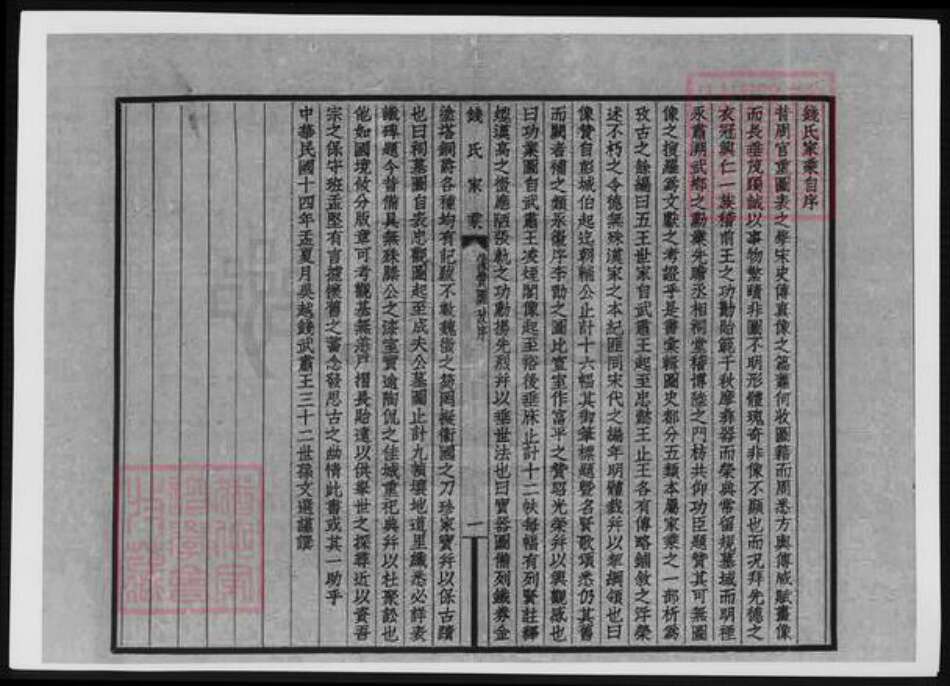 錢氏家乘自序
昔周官重圖表之學宋史傳真像之篇蕭何收圖籍而周悉方輿傅咸賦畫像
而長垂茂躅誠以事物繁賾非圖不明形體瑰奇非像不顯也而况拜先德之
衣冠興仁一族稽前王之功勳貽範千秋摩彝器而榮典常留規墓域而明禋
永肅溯武鄉之勳業先瞻丞相祠堂稽博陸之門楣共仰功臣題贊其可無圖
像之搜羅為文獻之考證乎是書彙輯圖史都分五類本屬家乘之一部析為
攷古之餘編曰五王世家自武肅王起至忠懿王止王各有傳略鋪敘之浮榮
述不朽之令德無殊漢家之本紀匪同宋代之編年明體裁幷以挈綱領也曰
像贊自彭城伯起迄朝輔公止計十六幅其御筆標題暨名賢歌頌悉仍其舊
而闕者補之類承徽序李勣之圖比室室作富平之贊昭光榮幷以興觀感也
曰功業圖自武肅王凌煙閣像起至裕後垂庥止計十二帙每幅有列賢註釋
媲漢高之徵應陋張軌之功勳揚先烈幷以垂世法也曰寶器圖備列鐵券金
錢氏家乘
像贊圖攷序
一
塗塔銅爵各種均有記跋不數魏徵之
國之刀珍家寶幷以保古蹟
也曰祠墓圖自表忠觀圖起至成夫公墓圖止計九幀壤地道里纖悉必詳表
識碑題今昔備具無殊滕公之漆室實逾陶侃之佳城重祀典幷以杜聚訟也
他如國境攸分版章可考觀基無
戸摺長貽遠以供舉世之探尋近以資吾
宗之保守班孟堅有言攄懷舊之蓄念發思古之幽情此書或其一助乎
中華民國十四年孟夏月吳越錢武肅王三十二世孫文選謹譔